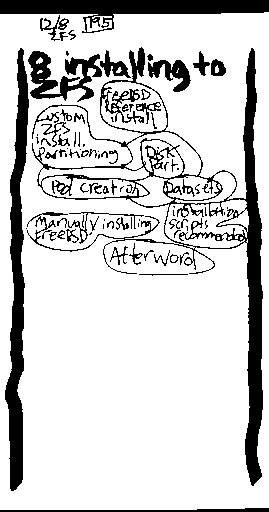 12/8 195
ZFS
8 installing to
ZFS
FreeBSD
Reference
install
Custom
ZFS
install.
Partitioning
Disk
Part.
Pool Creation
Datasets
Manually installing
FreeBSD
installation
scripts
recommended
Afterword